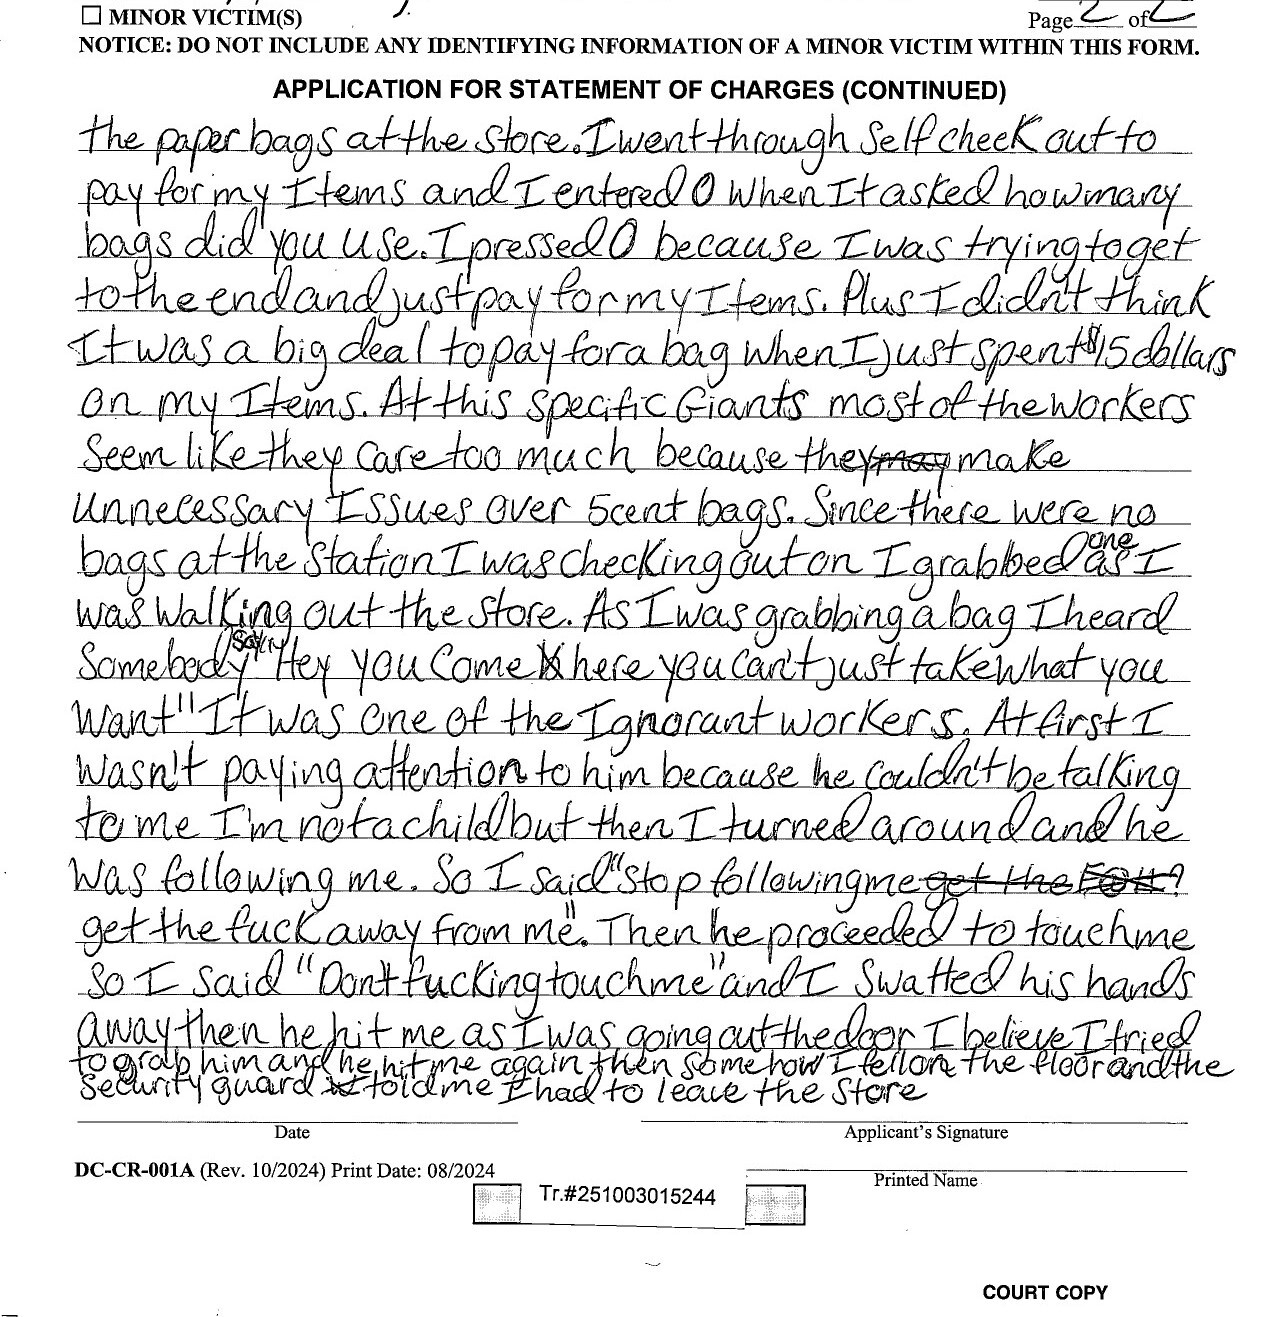 ☐ MINOR VICTIM(S)
Page 2 of 2
NOTICE: DO NOT INCLUDE ANY IDENTIFYING INFORMATION OF A MINOR VICTIM WITHIN THIS FORM.
APPLICATION FOR STATEMENT OF CHARGES (CONTINUED)
the paper bags at the store. I went through Self check out to
pay for my Items and I entered 0 When It asked how many
bags did you use. I pressed 0 because I was trying to get
to the end and just pay for my Items. Plus I didn't think
It was a big deal to pay for a bag when I just spent $15 dollars
on my Items. At this specific Giants most of the workers
Seem like they care too much because they may make
unnecessary Issues over 5cent bags. Since there were no
bags at the station I was checking out on I grabbed one as I
was walking out the store. As I was grabbing a bag I heard
Somebody sayin "Hey you come here you can't just take what you
want" It was one of the Ignorant workers. At first I
wasn't paying attention to him because he couldn't be talking
to me I'm not a child but then I turned around and he
was following me. So I said "stop following me get the
get the fuck away from me". Then he proceeded to touch me
so I said "Don't fucking touch me" and I swatted his hands
away then he hit me as I was going out the door I believe I tried
to grab him and he hit me again then somehow I fell on the floor and the
security guard told me I had to leave the store
Date
Applicant's Signature
DC-CR-001A (Rev. 10/2024) Print Date: 08/2024
Printed Name
Tr.#251003015244
COURT COPY